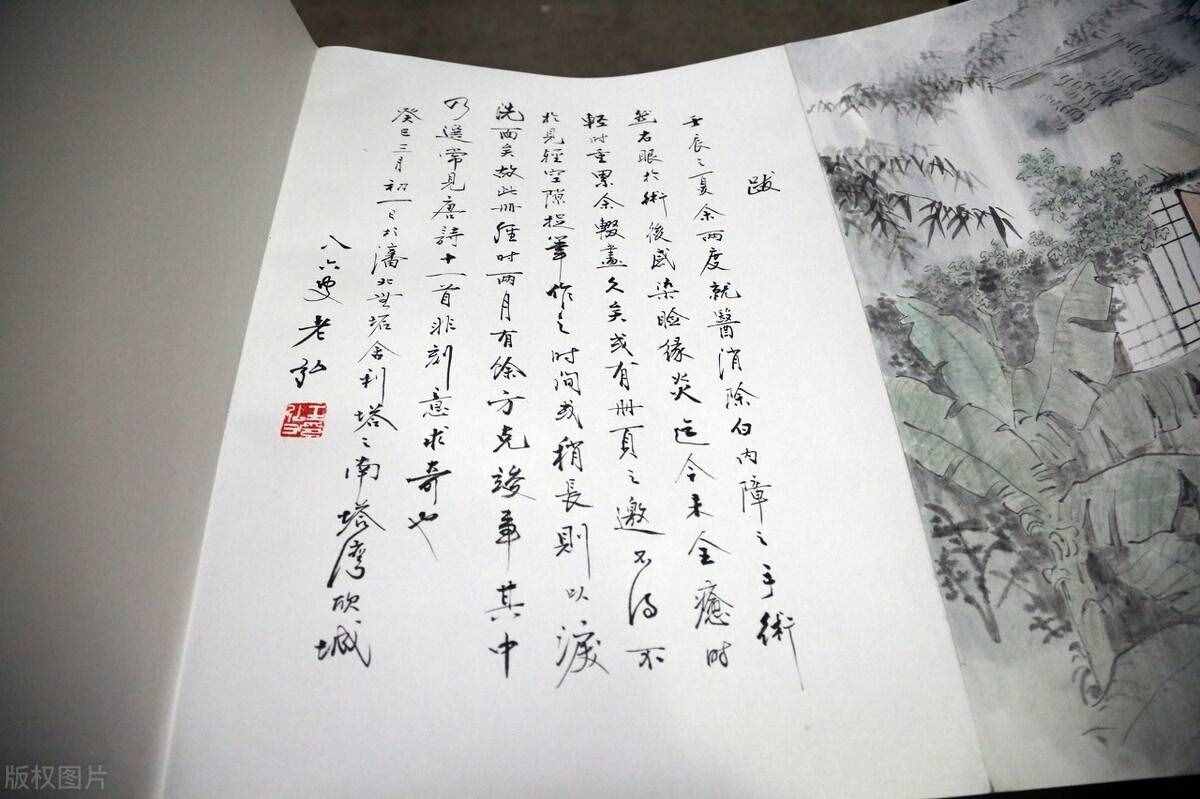 跋
壬辰之夏余兩度就醫消除白內障之手術
然右眼於術後感染瞼緣炎迄今未全癒时
輕时重累余輟畫久矣或有册頁之邀不得不
於見經空隙提筆作之时间或稍長則以淚
洗面矣故此册經时兩月有餘方克竣事其中
乃選常見唐詩十一首非刻意求奇也
癸巳三月初一日於瀋北無垢舍利塔之南塔灣欣城
八六叟老弘
版权图片